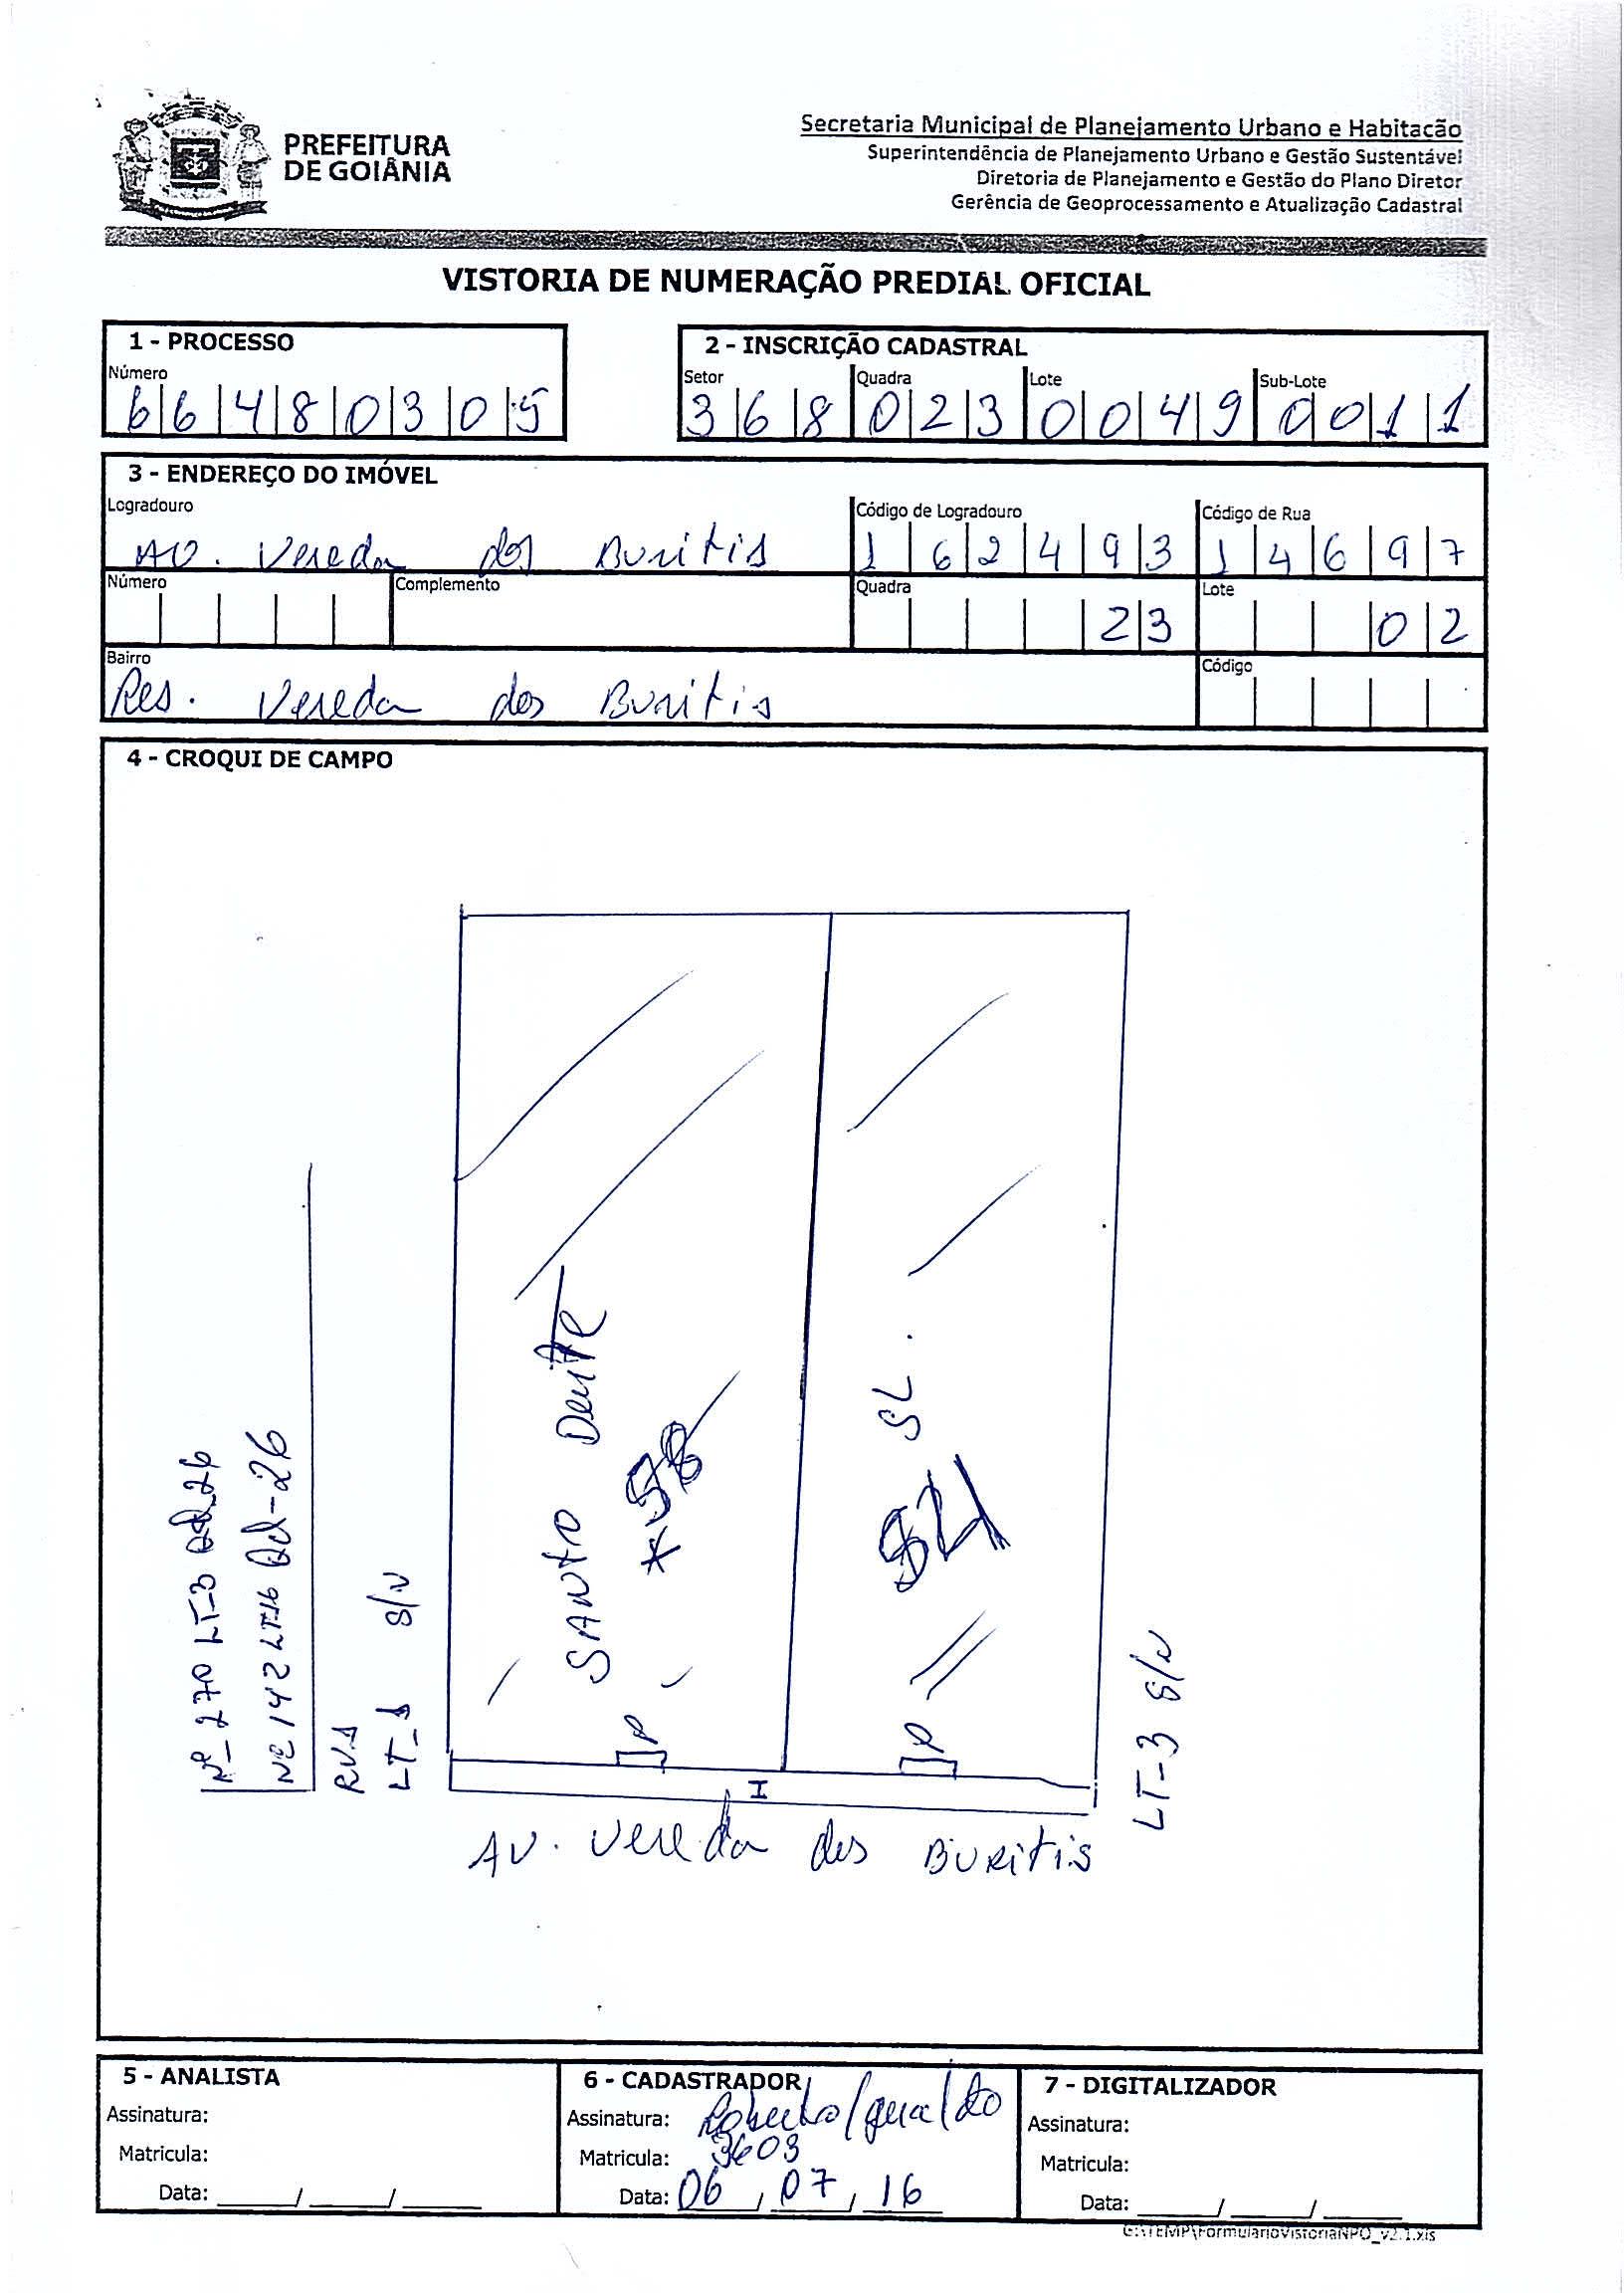 PREFEITURA
DE GOIÂNIA
Secretaria Municipal de Planejamento Urbano e Habitação
Superintendência de Planejamento Urbano e Gestão Sustentável
Diretoria de Planejamento e Gestão do Plano Diretor
Gerência de Geoprocessamento e Atualização Cadastral
VISTORIA DE NUMERAÇÃO PREDIAL OFICIAL
1 - PROCESSO
Número
6 6 4 8 0 3 0 5
2 - INSCRIÇÃO CADASTRAL
Setor Quadra Lote Sub-Lote
3 6 8 0 2 3 0 0 4 9 0 0 1 1
3 - ENDEREÇO DO IMÓVEL
Logradouro Código de Logradouro Código de Rua
AV. Vereda dos Buritis 1 6 2 4 9 3 1 4 6 9 7
Número Complemento Quadra Lote
23 02
Bairro Código
Res. Vereda dos Buritis
4 - CROQUI DE CAMPO
Nº_270 LT-3 Qd_26
Nº 142 LT-16 Qd-26
RV.1
LT_1 S/N
SANTO Dente
*58
SL.
LT-3 S/N
P
P
I
AV. Vereda dos BURITIS
5 - ANALISTA
Assinatura:
Matricula:
Data: ____/____/____
6 - CADASTRADOR
Assinatura: Roberto/Geraldo
Matricula: 3603
Data: 06/07/16
7 - DIGITALIZADOR
Assinatura:
Matricula:
Data: ____/____/____
G:\TEMP\FormularioVistoriaNPO_v2.1.xls